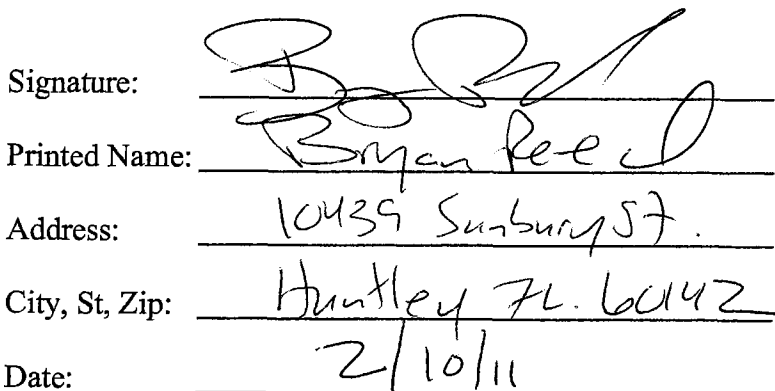 Signature:
Printed Name: Bryan Reed
Address: 10439 Sunbury St.
City, St, Zip: Huntley IL. 60142
Date: 2/10/11